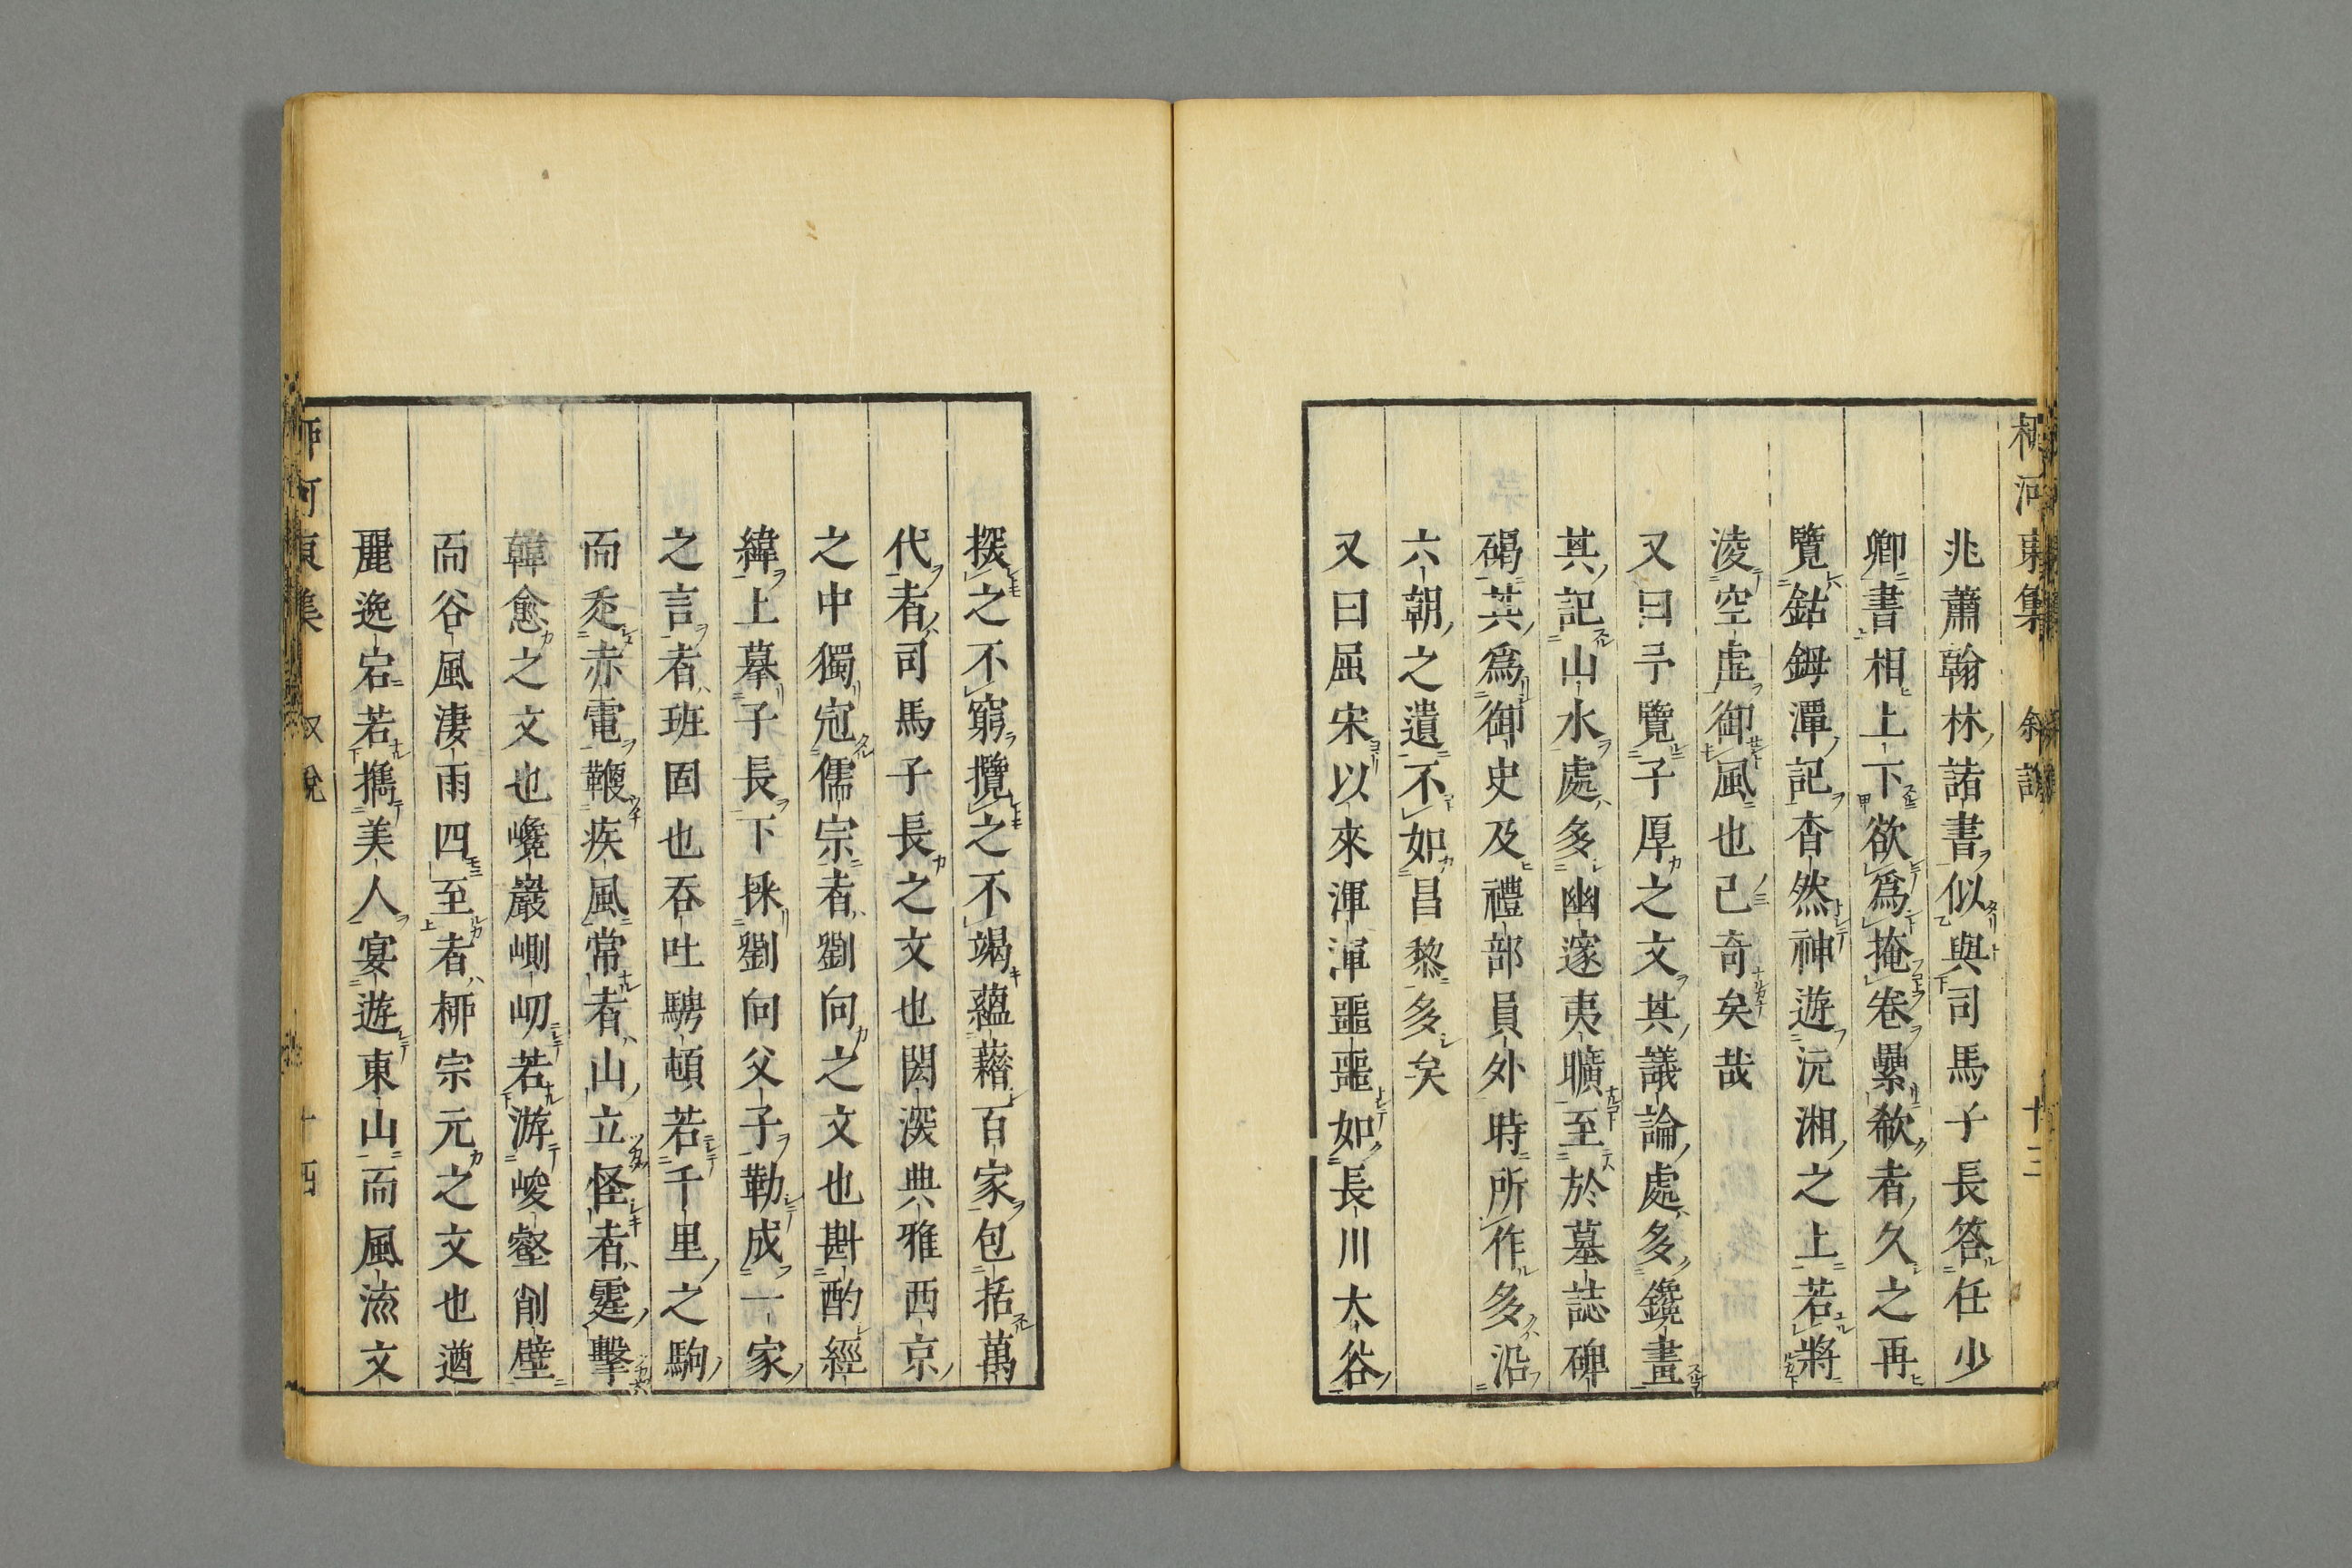 柳河東集 叙說 十三
兆蕭翰林諸書似與司馬子長答任少
卿書相上下欲爲掩卷纍欷者久之再
覽鈷鉧潭記杳然神遊沅湘之上若將
淩空虛御風也已奇矣哉
又曰予覽子厚之文其議論處多鑱畫
其記山水處多幽邃夷曠至於墓誌碑
碣其爲御史及禮部員外時所作多沿
六朝之遺不如昌黎多矣
又曰屈宋以來渾渾噩噩如長川大谷
探之不窮攬之不竭蘊藉百家包括萬
代者司馬子長之文也閎深典雅西京
之中獨冠儒宗者劉向之文也斟酌經
緯上摹子長下採劉向父子勒成一家
之言者班固也吞吐騁頓若千里之駒
而走赤電鞭疾風常者山立怪者霆擊
韓愈之文也巉巖崱屴若游峻壑削壁
而谷風淒雨四至者柳宗元之文也遒
麗逸宕若攜美人宴遊東山而風流文
柳河東集 叙說 十四